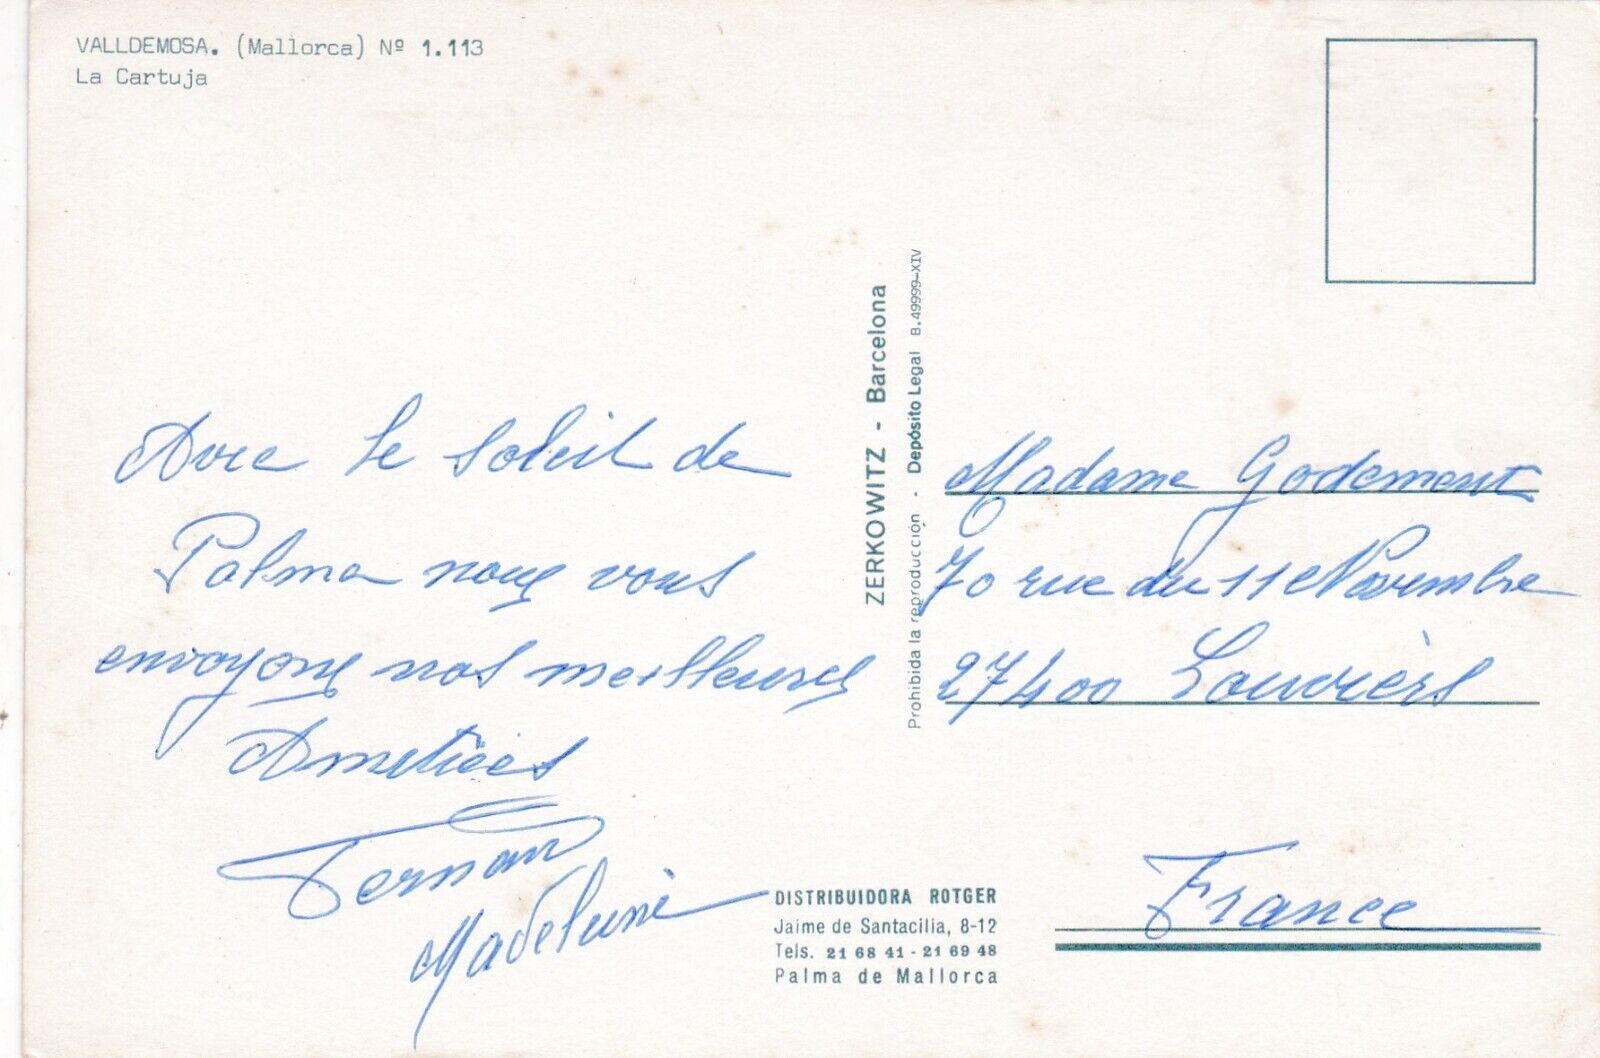 VALLDEMOSA. (Mallorca) Nº 1.113
La Cartuja
Avec le soleil de
Palma nous vous
envoyons nos meilleures
Amitiées
Fernan
Madeleine
ZERKOWITZ - Barcelona
Prohibida la reproducción - Depósito Legal B.49999-XIV
Madame Godement
70 rue du 11 Novembre
27400 Louvièrs
France
DISTRIBUIDORA ROTGER
Jaime de Santacilia, 8-12
Tels. 21 68 41 - 21 69 48
Palma de Mallorca